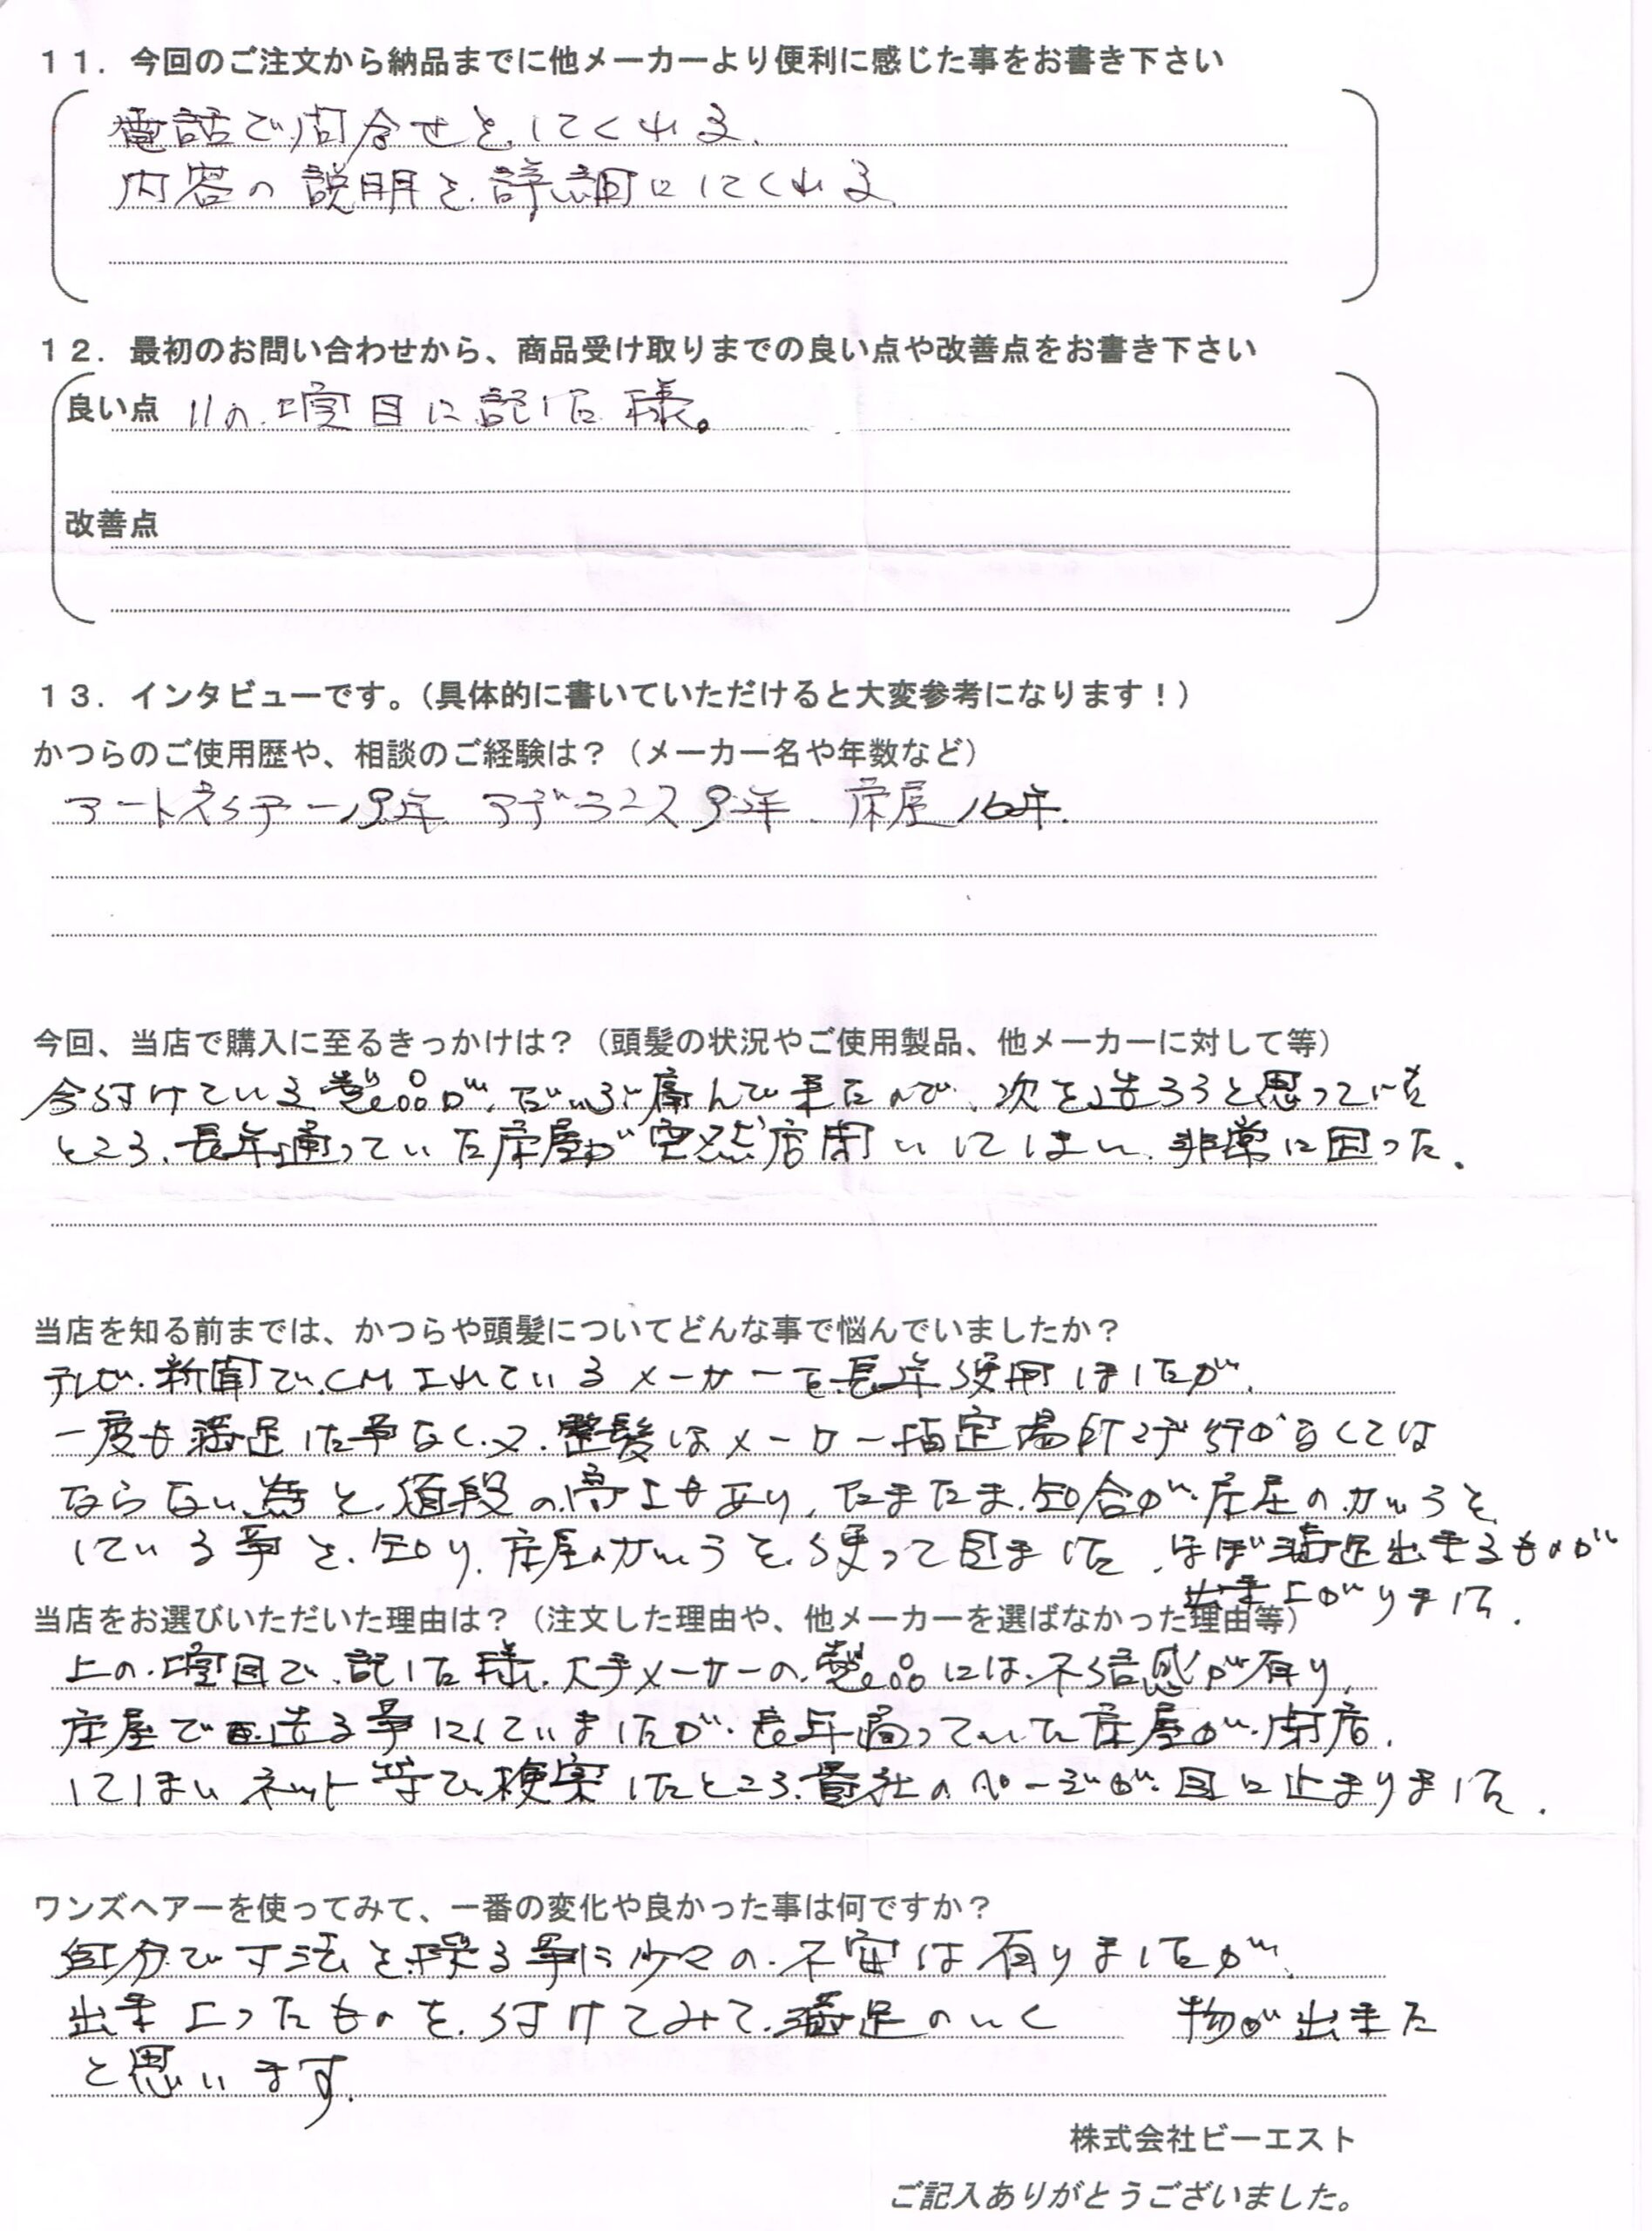 11．今回のご注文から納品までに他メーカーより便利に感じた事をお書き下さい
電話で問合せを、してくれる、
内容の説明を、詳細にしてくれる、
12．最初のお問い合わせから、商品受け取りまでの良い点や改善点をお書き下さい
良い点 11の、項目に記した様。
改善点
13．インタビューです。（具体的に書いていただけると大変参考になります！）
かつらのご使用歴や、相談のご経験は？（メーカー名や年数など）
アートネイチャー 年、アデランス 年、床屋 16年.
今回、当店で購入に至るきっかけは？（頭髪の状況やご使用製品、他メーカーに対して等）
今付けている製品が、だいぶ痛んで来たので、次を造ろうと思っていた
ところ、長年通っていた床屋が突然店閉いしてしまい、非常に困った.
当店を知る前までは、かつらや頭髪についてどんな事で悩んでいましたか？
テレビ、新聞で、CMされているメーカーを長年使用しましたが、
一度も満足した事なく、又、整髪はメーカー指定場所まで行かなくては
ならない為と、値段の高さもあり、たまたま、知合が、床屋のかつらを
している事を、知り、床屋のかつらを、使って見ました、ほぼ満足出来るものが
出来上がりました.
当店をお選びいただいた理由は？（注文した理由や、他メーカーを選ばなかった理由等）
上の、項目で、記した様、大手メーカーの、製品には、不信感が有り、
床屋で造る事にしていましたが、長年通っていた床屋が、閉店、
してしまいネット等で検索したところ、貴社のページが、目に止まりました.
ワンズヘアーを使ってみて、一番の変化や良かった事は何ですか？
自分で寸法を採る事に少々の、不安は有りましたが、
出来上ったものを、付けてみて、満足のいく 物が出来た
と思います.
株式会社ビーエスト
ご記入ありがとうございました。